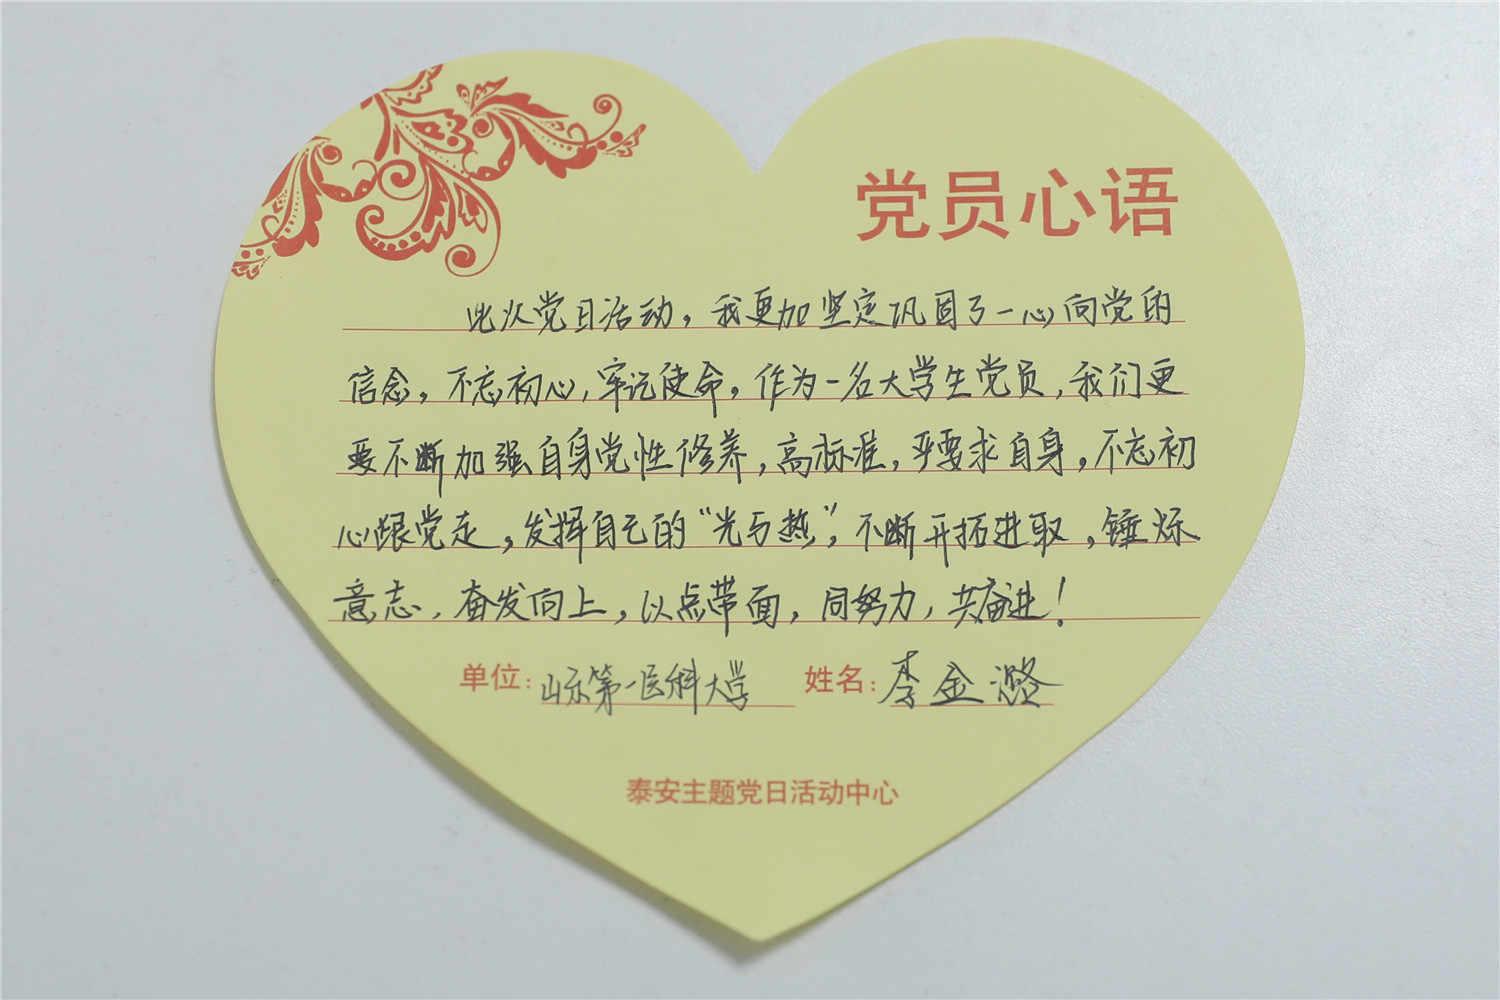 党员心语
此次党日活动，我更加坚定巩固了一心向党的
信念。不忘初心，牢记使命，作为一名大学生党员，我们更
要不断加强自身党性修养，高标准，严要求自身，不忘初
心跟党走，发挥自己的“光与热”，不断开拓进取，锤炼
意志，奋发向上，以点带面，同努力，共奋进！
单位：山东第一医科大学 姓名：李金潞
泰安主题党日活动中心